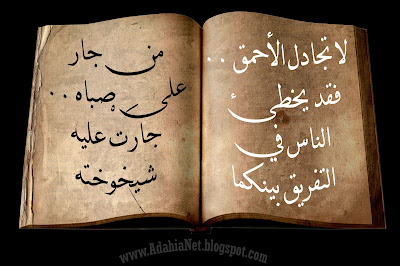 لا تجادل الأحمق ..
فقد يخطئ
الناس في
التفريق بينكما
من جار
على صباه ..
جارت عليه
شيخوخته
www.AdahiaNet.blogspot.com